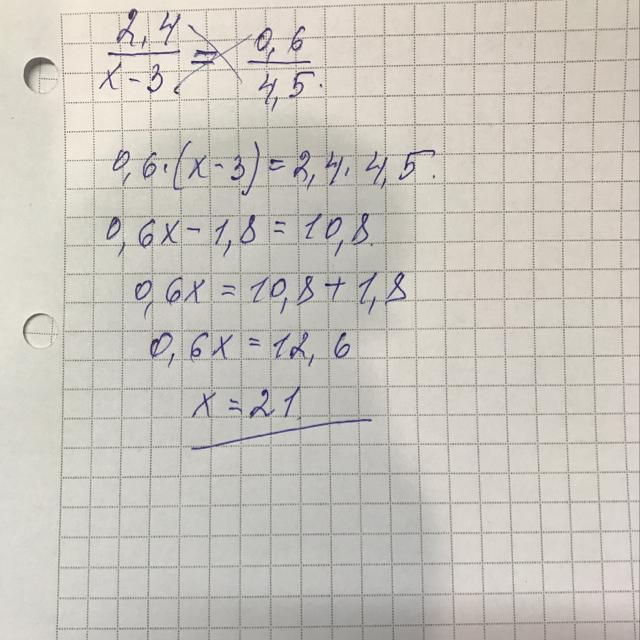 2,4 / x-3 = 0,6 / 4,5.
0,6·(x-3)=2,4·4,5.
0,6x-1,8=10,8.
0,6x=10,8+1,8
0,6x=12,6
x=21.